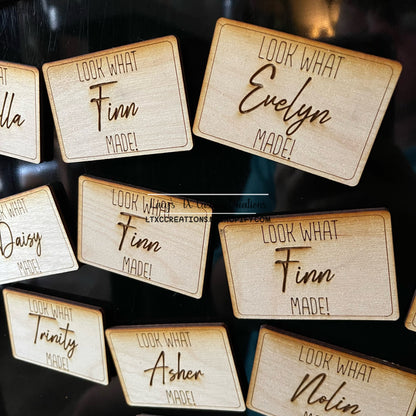 LOOK WHAT
Finn
MADE!
LOOK WHAT
Evelyn
MADE!
LOOK WHAT
Daisy
MADE!
LOOK WHAT
Finn
MADE!
LOOK WHAT
Finn
MADE!
LTXCCREATIONS.SHOPIFY.COM
LOOK WHAT
Trinity
MADE!
LOOK WHAT
Asher
MADE!
LOOK WHAT
Nolin
MADE!